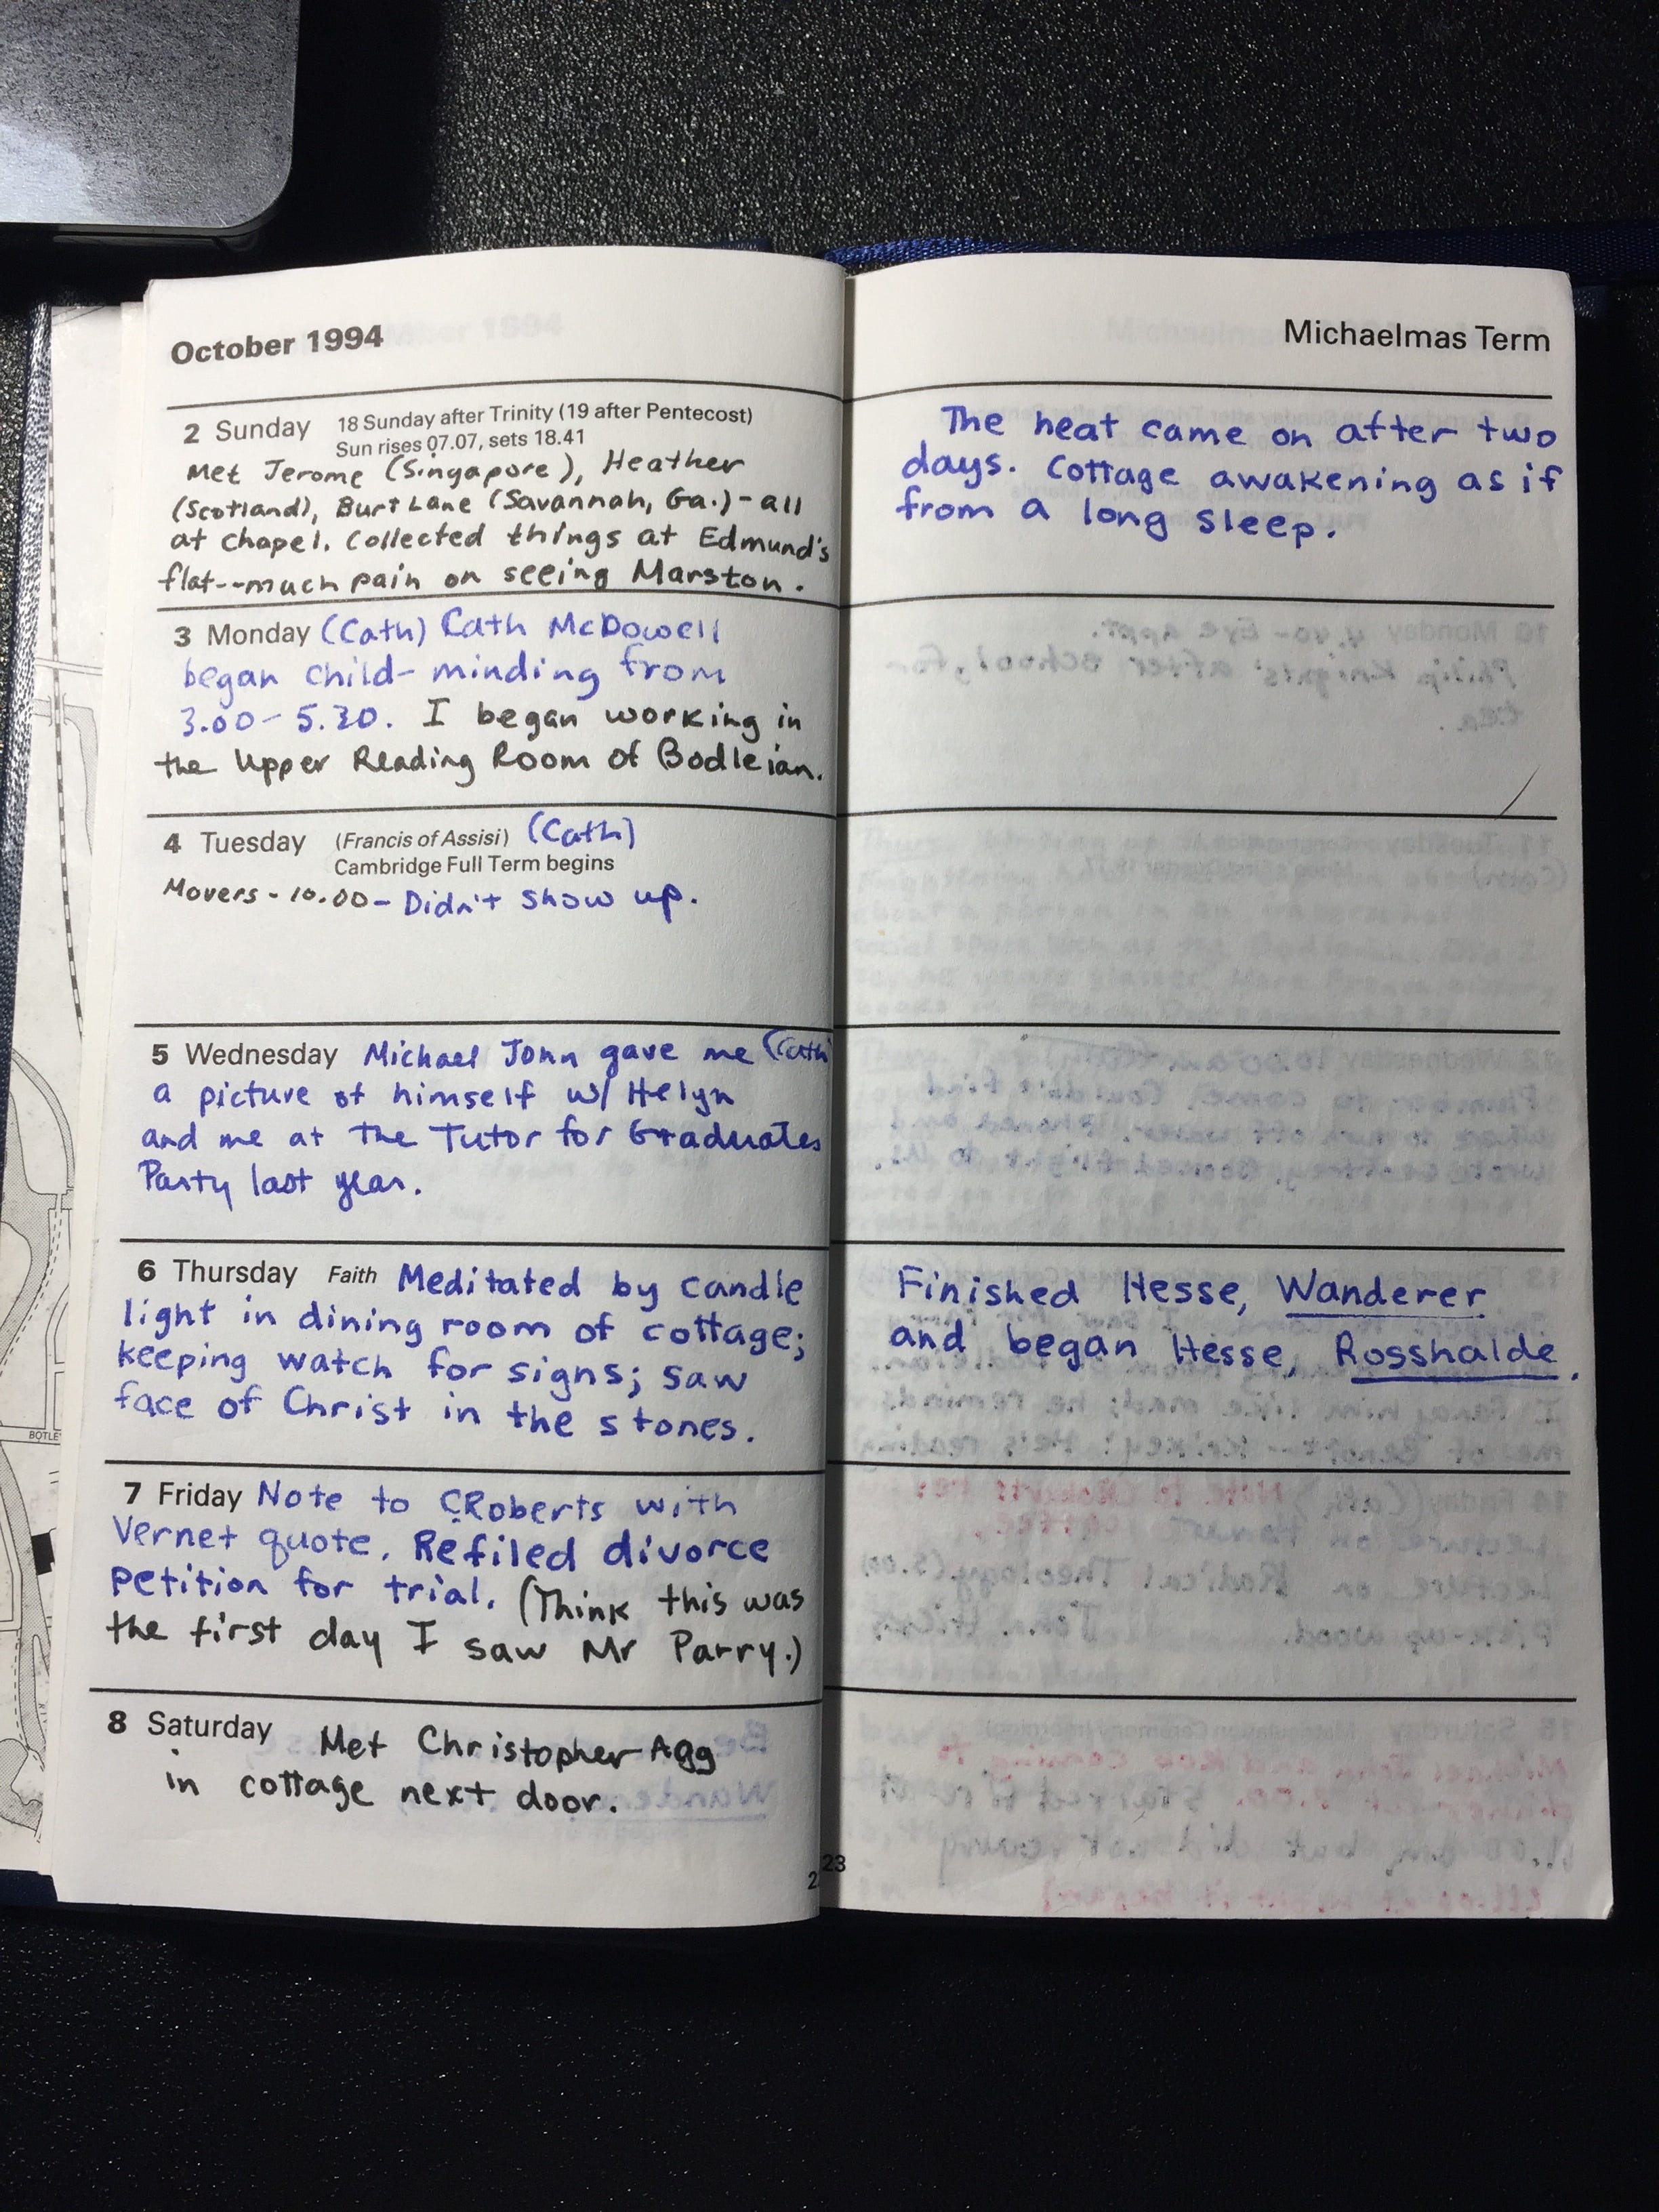 October 1994
2 Sunday 18 Sunday after Trinity (19 after Pentecost)
Sun rises 07.07, sets 18.41
Met Jerome (Singapore), Heather
(Scotland), Burt Lane (Savannah, Ga.) - all
at chapel. Collected things at Edmund's
flat--much pain on seeing Marston.
3 Monday (Cath) Cath McDowell
began child-minding from
3.00 - 5.30. I began working in
the Upper Reading Room of Bodleian.
4 Tuesday (Francis of Assisi) (Cath)
Cambridge Full Term begins
Movers - 10.00 - Didn't show up.
5 Wednesday Michael John gave me (Cath)
a picture of himself w/ Helyn
and me at the Tutor for Graduates
Party last year.
6 Thursday Faith Meditated by candle
light in dining room of cottage;
keeping watch for signs; saw
face of Christ in the stones.
7 Friday Note to CRoberts with
Vernet quote. Refiled divorce
petition for trial. (Think this was
the first day I saw Mr Parry.)
8 Saturday Met Christopher Agg
in cottage next door.
2
Michaelmas Term
The heat came on after two
days. Cottage awakening as if
from a long sleep.
Finished Hesse, Wanderer
and began Hesse, Rosshalde.
23
BOTLE